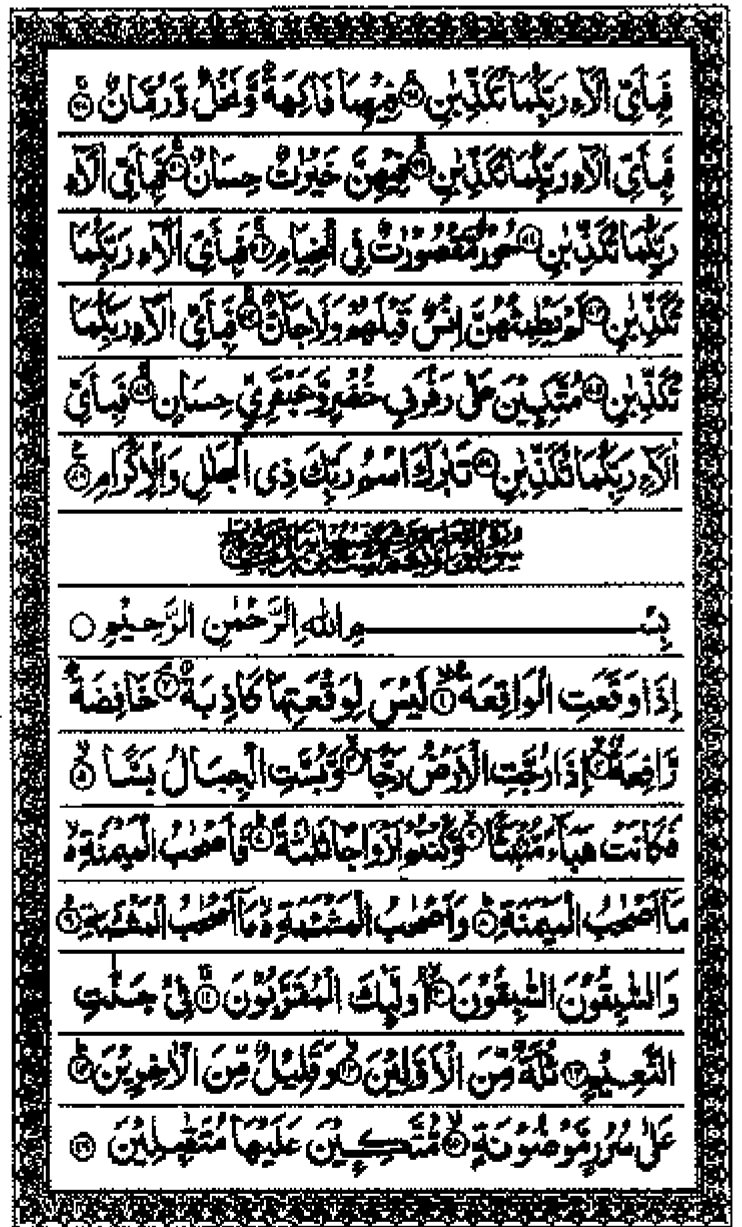 فَبِأَيِّ اٰلَآءِ رَبِّكُمَا تُكَذِّبٰنِ ﴿٦٧﴾ فِيْهِمَا فَاكِهَةٌ وَّنَخْلٌ وَّرُمَّانٌ ﴿٦٨﴾
فَبِأَيِّ اٰلَآءِ رَبِّكُمَا تُكَذِّبٰنِ ﴿٦٩﴾ فِيْهِنَّ خَيْرٰتٌ حِسَانٌ ﴿٧٠﴾ فَبِأَيِّ اٰلَآءِ
رَبِّكُمَا تُكَذِّبٰنِ ﴿٧١﴾ حُوْرٌ مَّقْصُوْرٰتٌ فِى الْخِيَامِ ﴿٧٢﴾ فَبِأَيِّ اٰلَآءِ رَبِّكُمَا
تُكَذِّبٰنِ ﴿٧٣﴾ لَمْ يَطْمِثْهُنَّ اِنْسٌ قَبْلَهُمْ وَلَا جَآنٌّ ﴿٧٤﴾ فَبِأَيِّ اٰلَآءِ رَبِّكُمَا
تُكَذِّبٰنِ ﴿٧٥﴾ مُتَّكِـِٕيْنَ عَلٰى رَفْرَفٍ خُضْرٍ وَّعَبْقَرِيٍّ حِسَانٍ ﴿٧٦﴾ فَبِأَيِّ
اٰلَآءِ رَبِّكُمَا تُكَذِّبٰنِ ﴿٧٧﴾ تَبٰرَكَ اسْمُ رَبِّكَ ذِى الْجَلٰلِ وَالْاِكْرَامِ ﴿٧٨﴾
بِسْمِ اللهِ الرَّحْمٰنِ الرَّحِيْمِ
اِذَا وَقَعَتِ الْوَاقِعَةُ ﴿١﴾ لَيْسَ لِوَقْعَتِهَا كَاذِبَةٌ ﴿٢﴾ خَافِضَةٌ
رَّافِعَةٌ ﴿٣﴾ اِذَا رُجَّتِ الْاَرْضُ رَجًّا ﴿٤﴾ وَّبُسَّتِ الْجِبَالُ بَسًّا ﴿٥﴾
فَكَانَتْ هَبَآءً مُّنْۢبَثًّا ﴿٦﴾ وَّكُنْتُمْ اَزْوَاجًا ثَلٰثَةً ﴿٧﴾ فَاَصْحٰبُ الْمَيْمَنَةِ
مَآ اَصْحٰبُ الْمَيْمَنَةِ ﴿٨﴾ وَاَصْحٰبُ الْمَشْـَٔمَةِ مَآ اَصْحٰبُ الْمَشْـَٔمَةِ ﴿٩﴾
وَالسّٰبِقُوْنَ السّٰبِقُوْنَ ﴿١٠﴾ اُولٰٓئِكَ الْمُقَرَّبُوْنَ ﴿١١﴾ فِيْ جَنّٰتِ
النَّعِيْمِ ﴿١٢﴾ ثُلَّةٌ مِّنَ الْاَوَّلِيْنَ ﴿١٣﴾ وَقَلِيْلٌ مِّنَ الْاٰخِرِيْنَ ﴿١٤﴾
عَلٰى سُرُرٍ مَّوْضُوْنَةٍ ﴿١٥﴾ مُّتَّكِـِٕيْنَ عَلَيْهَا مُتَقٰبِلِيْنَ ﴿١٦﴾